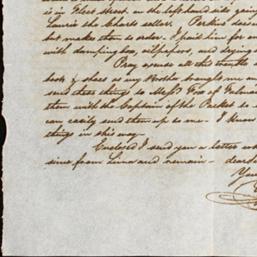 is in Fleet Street, on the left hand side going
Laurie the Charts seller. Perkins
but makes them to order. I paid him for
with damping box, oil papers, and drying
Pray excuse all this trouble
book & shoes as my Brother bought me an
send these things to Messrs Fox of Falmouth
them with the Captain of the Packet to
can easily send them up to me - I know
things in this way.
Enclosed I send you a letter
since from Lima and remain - dear
You